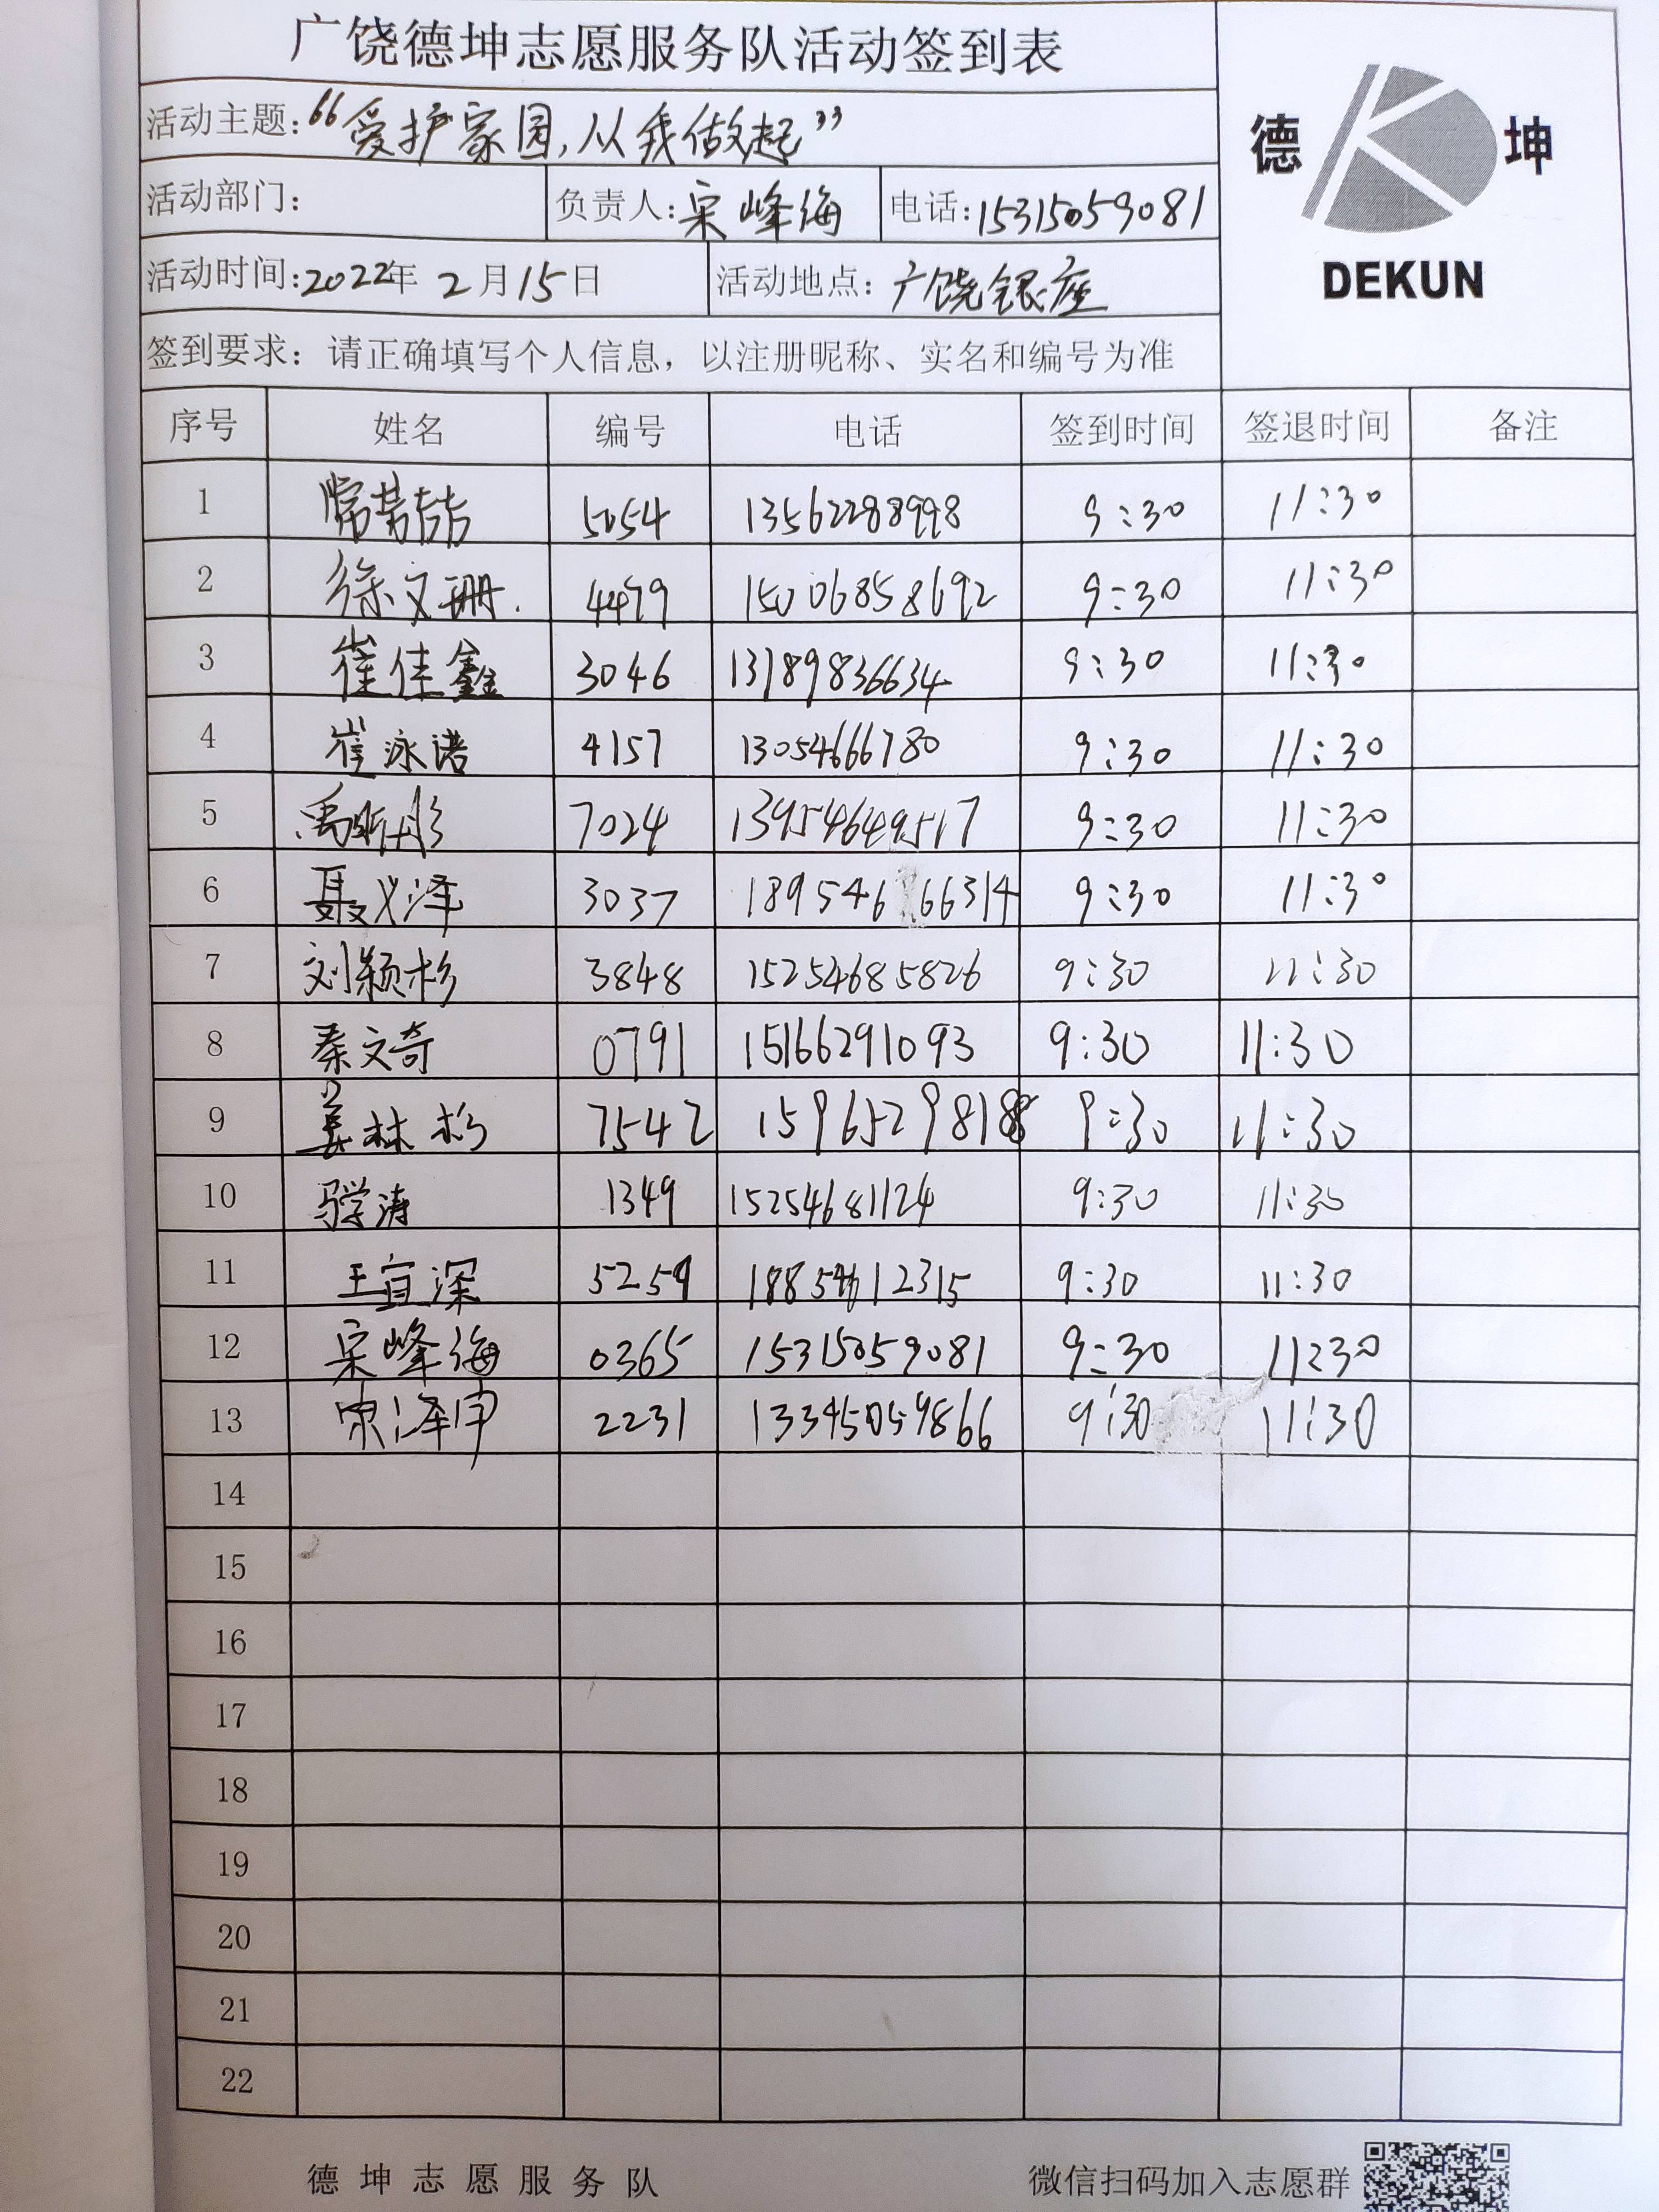 广饶德坤志愿服务队活动签到表
德 坤
DEKUN
活动主题：“爱护家园，从我做起”
活动部门： 负责人：宋峰海 电话：15315059081
活动时间：2022年 2月15日 活动地点：广饶银座
签到要求：请正确填写个人信息，以注册昵称、实名和编号为准
序号 姓名 编号 电话 签到时间 签退时间 备注
1 5054 13562288998 9:30 11:30
2 徐文珊 4479 15006858692 9:30 11:30
3 崔佳鑫 3046 13189836634 9:30 11:30
4 崔泳诺 4157 13054666780 9:30 11:30
5 7024 13954649517 9:30 11:30
6 聂义泽 3037 18954666314 9:30 11:30
7 刘颖杉 3848 15254685826 9:30 11:30
8 秦文奇 0791 15166291093 9:30 11:30
9 姜林杉 7542 9:30 11:30
10 1349 15254681124 9:30 11:30
11 王宜深 5259 18854612315 9:30 11:30
12 宋峰海 0365 15315059081 9:30 11:30
13 2231 13345059866 9:30 11:30
14
15
16
17
18
19
20
21
22
德坤志愿服务队 微信扫码加入志愿群